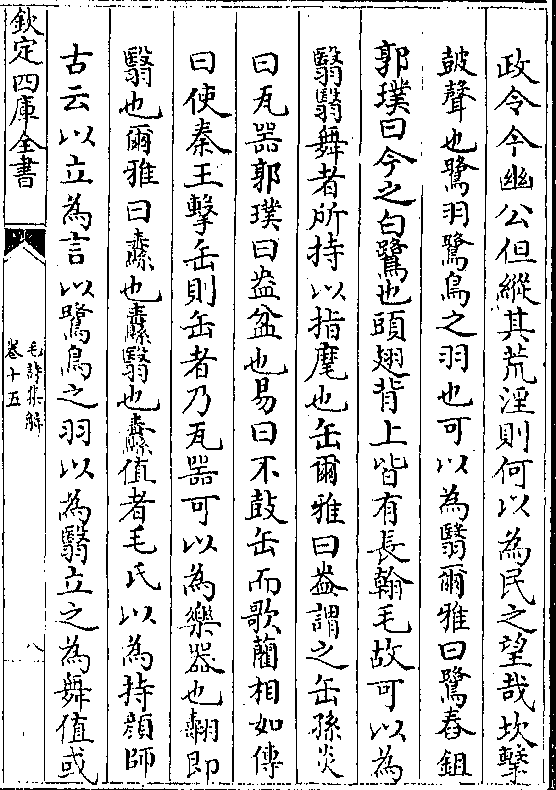 政令今幽公但縱其荒淫則何以為民之望哉坎擊
皷聲也鷺羽鷺鳥之羽也可以為翳爾雅曰鷺舂鉏
郭璞曰今之白鷺也頭翅背上皆有長翰毛故可以為
翳翳舞者所持以指麾也缶爾雅曰盎謂之缶孫炎
曰瓦器郭璞曰盎盆也易曰不鼓缶而歌藺相如傳
曰使秦王擊缶則缶者乃瓦器可以為樂器也翿即
翳也爾雅曰纛也纛翳也纛值者毛氏以為持顔師
古云以立為言以鷺鳥之羽以為翳立之為舞值或
欽定四庫全書
毛詩集解
卷十五
八